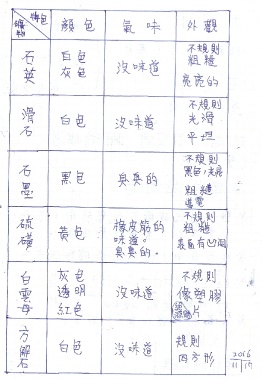 特色
礦物
顏色
氣味
外觀
石英
白色
灰色
沒味道
不規則
粗糙
亮亮的
滑石
白色
沒味道
不規則
光滑
平坦
石墨
黑色
臭臭的
不規則
黑色
粗糙
導電
硫磺
黃色
橡皮筋的
味道。
臭臭的。
不規則
粗糙
表面有凹洞
白雲母
灰色
透明
紅色
沒味道
不規則
像塑膠
片
方解石
白色
沒味道
規則
四方形
2016